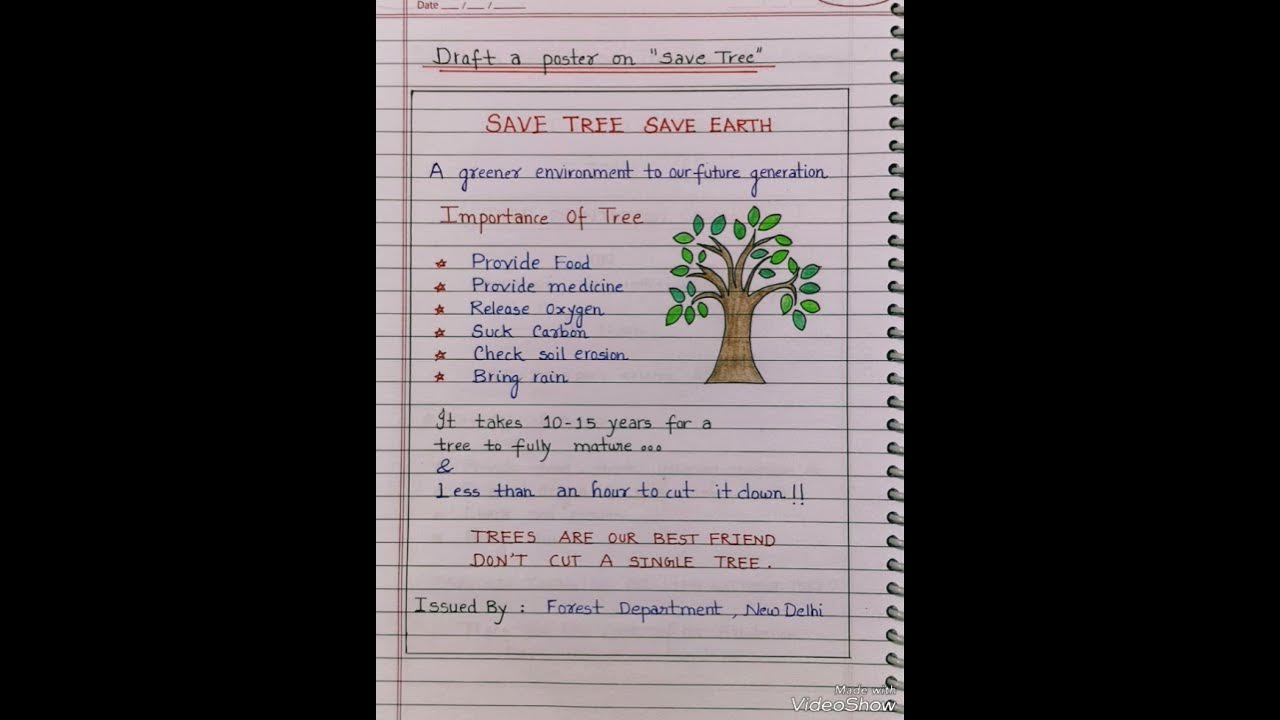 Date ___ /___ /_____
Draft a poster on "Save Tree"
SAVE TREE SAVE EARTH
A greener environment to our future generation
Importance Of Tree
☆ Provide Food
☆ Provide medicine
☆ Release Oxygen
☆ Suck Carbon
☆ Check soil erosion
☆ Bring rain
It takes 10-15 years for a
tree to fully mature ...
&
Less than an hour to cut it down!!
TREES ARE OUR BEST FRIEND
DON'T CUT A SINGLE TREE.
Issued By : Forest Department, New Delhi
Made with
VideoShow